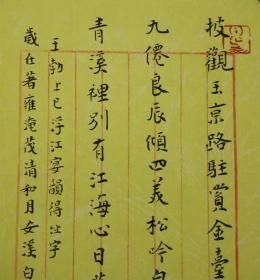 披觀玉京路駐賞金臺
九僊良辰傾四美松吟白
青溪裡別有江海心日
王勃上巳浮江宴韻得阯字
歲在著雍淹茂清和月女溪白